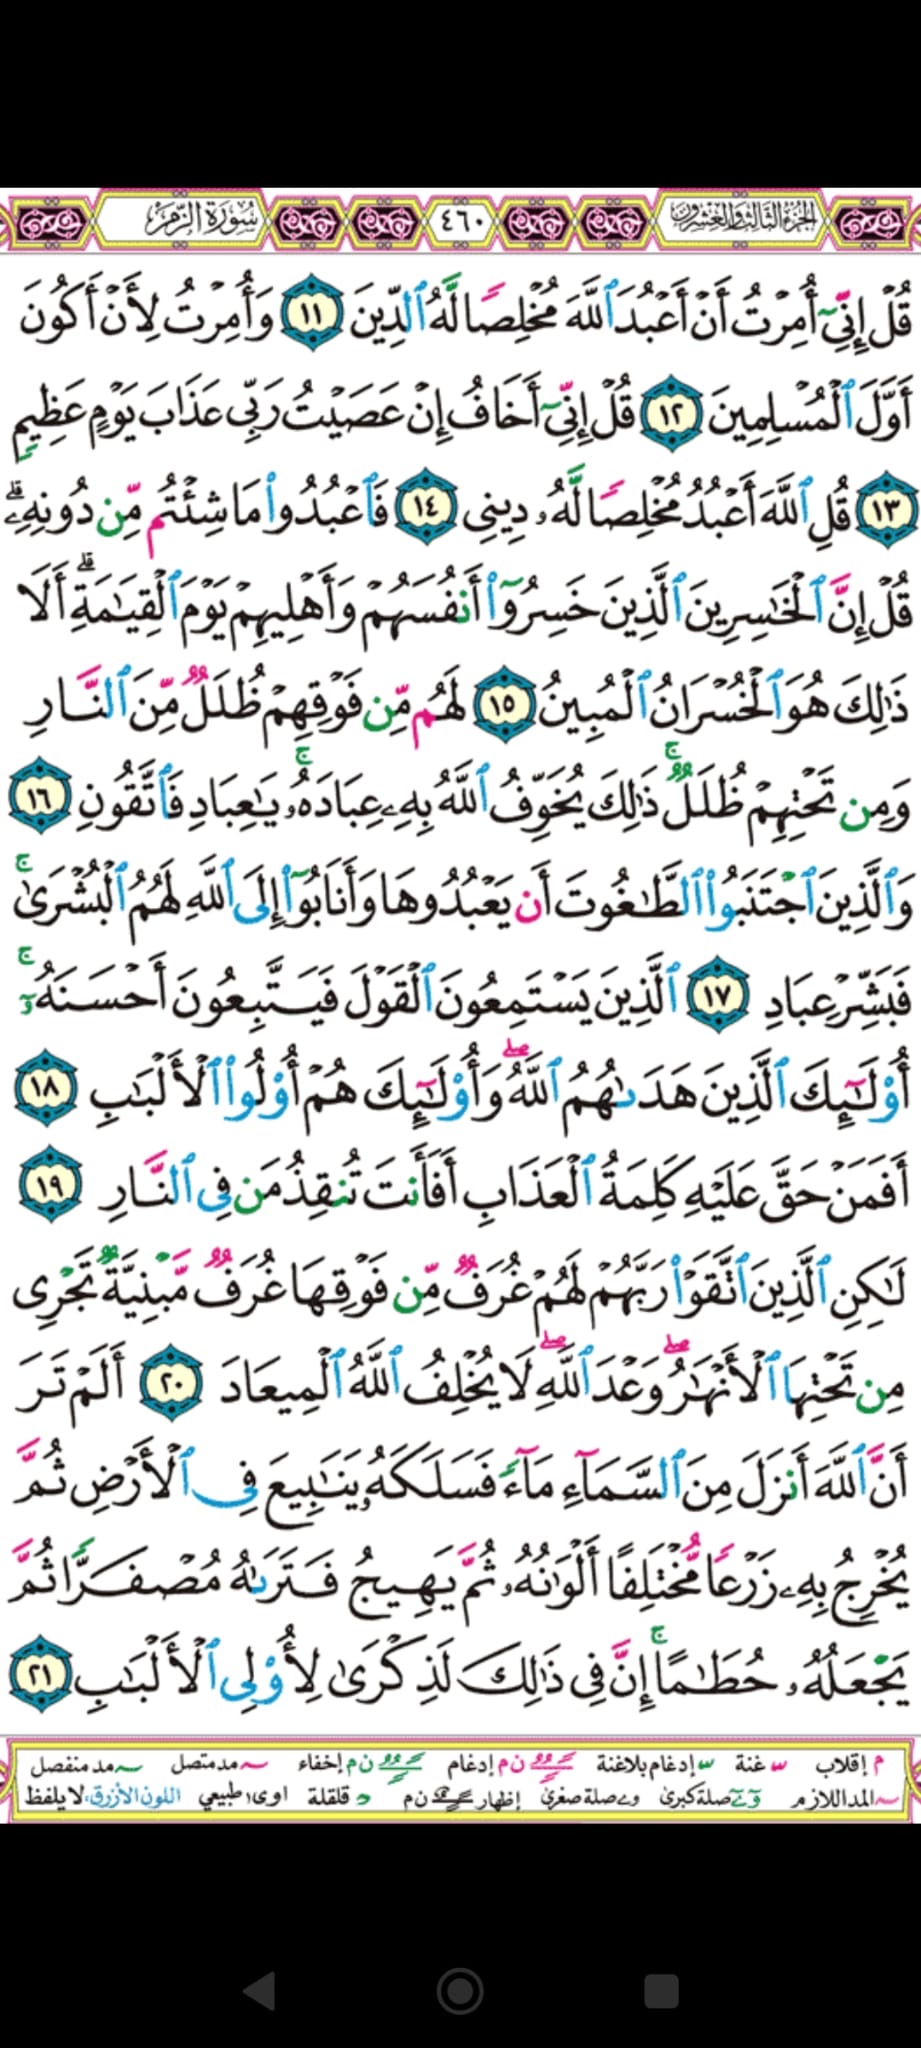 الجزء الثالث والعشرون ٤٦٠ سورة الزمر
قُلْ إِنِّىٓ أُمِرْتُ أَنْ أَعْبُدَ ٱللَّهَ مُخْلِصًا لَّهُ ٱلدِّينَ ١١ وَأُمِرْتُ لِأَنْ أَكُونَ
أَوَّلَ ٱلْمُسْلِمِينَ ١٢ قُلْ إِنِّىٓ أَخَافُ إِنْ عَصَيْتُ رَبِّى عَذَابَ يَوْمٍ عَظِيمٍ
١٣ قُلِ ٱللَّهَ أَعْبُدُ مُخْلِصًا لَّهُۥ دِينِى ١٤ فَٱعْبُدُوا۟ مَا شِئْتُم مِّن دُونِهِۦ ۗ
قُلْ إِنَّ ٱلْخَـٰسِرِينَ ٱلَّذِينَ خَسِرُوٓا۟ أَنفُسَهُمْ وَأَهْلِيهِمْ يَوْمَ ٱلْقِيَـٰمَةِ ۗ أَلَا
ذَٰلِكَ هُوَ ٱلْخُسْرَانُ ٱلْمُبِينُ ١٥ لَهُم مِّن فَوْقِهِمْ ظُلَلٌ مِّنَ ٱلنَّارِ
وَمِن تَحْتِهِمْ ظُلَلٌ ۚ ذَٰلِكَ يُخَوِّفُ ٱللَّهُ بِهِۦ عِبَادَهُۥ ۚ يَـٰعِبَادِ فَٱتَّقُونِ ١٦
وَٱلَّذِينَ ٱجْتَنَبُوا۟ ٱلطَّـٰغُوتَ أَن يَعْبُدُوهَا وَأَنَابُوٓا۟ إِلَى ٱللَّهِ لَهُمُ ٱلْبُشْرَىٰ ۚ
فَبَشِّرْ عِبَادِ ١٧ ٱلَّذِينَ يَسْتَمِعُونَ ٱلْقَوْلَ فَيَتَّبِعُونَ أَحْسَنَهُۥٓ ۚ
أُو۟لَـٰٓئِكَ ٱلَّذِينَ هَدَىٰهُمُ ٱللَّهُ ۖ وَأُو۟لَـٰٓئِكَ هُمْ أُو۟لُوا۟ ٱلْأَلْبَـٰبِ ١٨
أَفَمَنْ حَقَّ عَلَيْهِ كَلِمَةُ ٱلْعَذَابِ أَفَأَنتَ تُنقِذُ مَن فِى ٱلنَّارِ ١٩
لَـٰكِنِ ٱلَّذِينَ ٱتَّقَوْا۟ رَبَّهُمْ لَهُمْ غُرَفٌ مِّن فَوْقِهَا غُرَفٌ مَّبْنِيَّةٌ تَجْرِى
مِن تَحْتِهَا ٱلْأَنْهَـٰرُ ۖ وَعْدَ ٱللَّهِ ۖ لَا يُخْلِفُ ٱللَّهُ ٱلْمِيعَادَ ٢٠ أَلَمْ تَرَ
أَنَّ ٱللَّهَ أَنزَلَ مِنَ ٱلسَّمَآءِ مَآءً فَسَلَكَهُۥ يَنَـٰبِيعَ فِى ٱلْأَرْضِ ثُمَّ
يُخْرِجُ بِهِۦ زَرْعًا مُّخْتَلِفًا أَلْوَٰنُهُۥ ثُمَّ يَهِيجُ فَتَرَىٰهُ مُصْفَرًّا ثُمَّ
يَجْعَلُهُۥ حُطَـٰمًا ۚ إِنَّ فِى ذَٰلِكَ لَذِكْرَىٰ لِأُو۟لِى ٱلْأَلْبَـٰبِ ٢١
م إقلاب غنة إدغام بلاغنة ن م إدغام ن م إخفاء مد متصل مد منفصل
المد اللازم صلة كبرى صلة صغرى إظهار ن م قلقلة اوى طبيعي اللون الأزرق، لا يلفظ